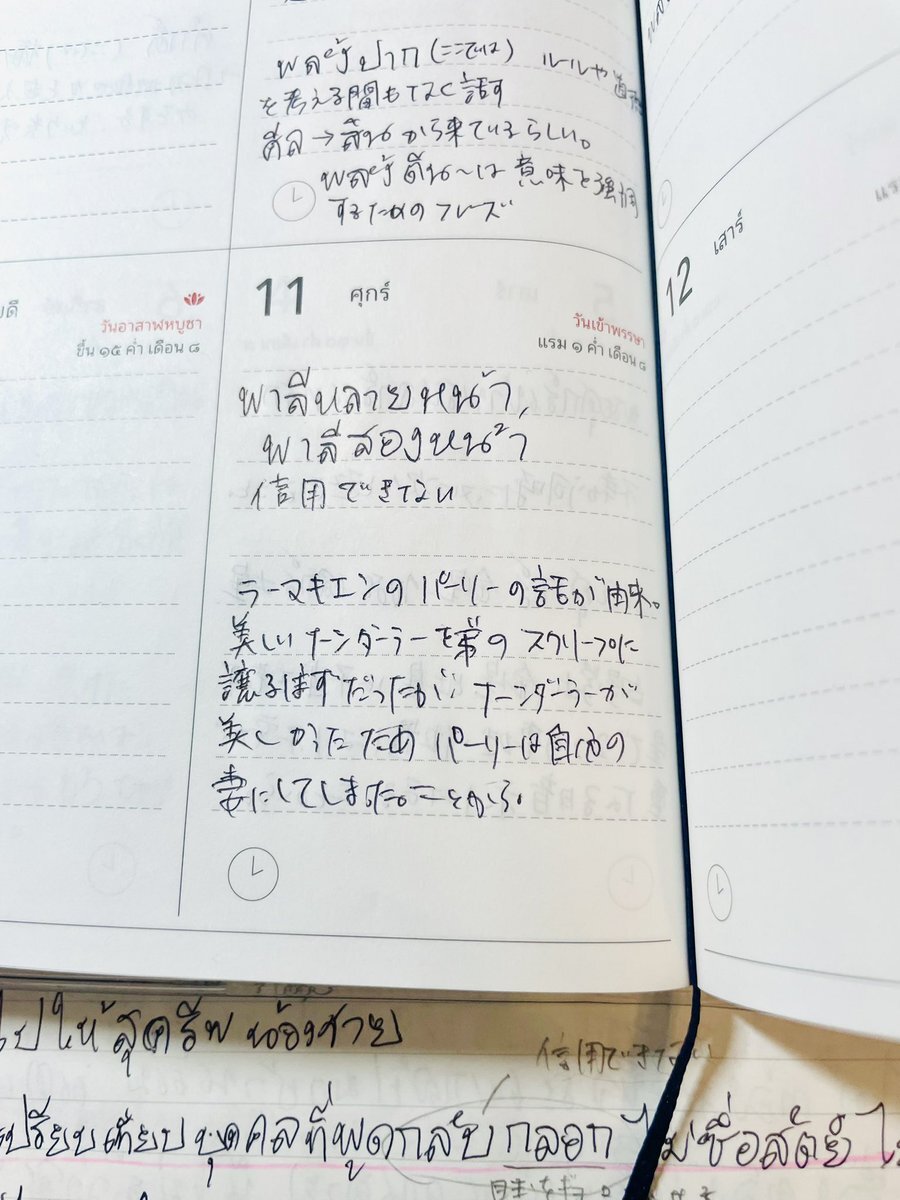 พลั้งปาก (ここでは) ルールや道
を考える間もなく話す
ศีล → สีน から来ているらしい。
พลั้งตีน〜は意味を強調
するためのフレーズ
ดี
วันอาสาฬหบูชา
ขึ้น ๑๕ ค่ำ เดือน ๘
11 ศุกร์
วันเข้าพรรษา
แรม ๑ ค่ำ เดือน ๘
พาลีหลายหน้า,
พาลีสองหน้า
信用できない
ラーマキエンのパーリーの話が由来。
美しいナーンダーラーを弟のスクリープに
譲るはずだったが、ナーンダーラーが
美しかったためパーリーは自分の
妻にしてしまったことから。
12 เสาร์
ไปให้สุครีพ น้องชาย
信用できない
เปรียบเทียบบุคคลที่พูดกลับกลอก ไม่ซื่อสัตย์